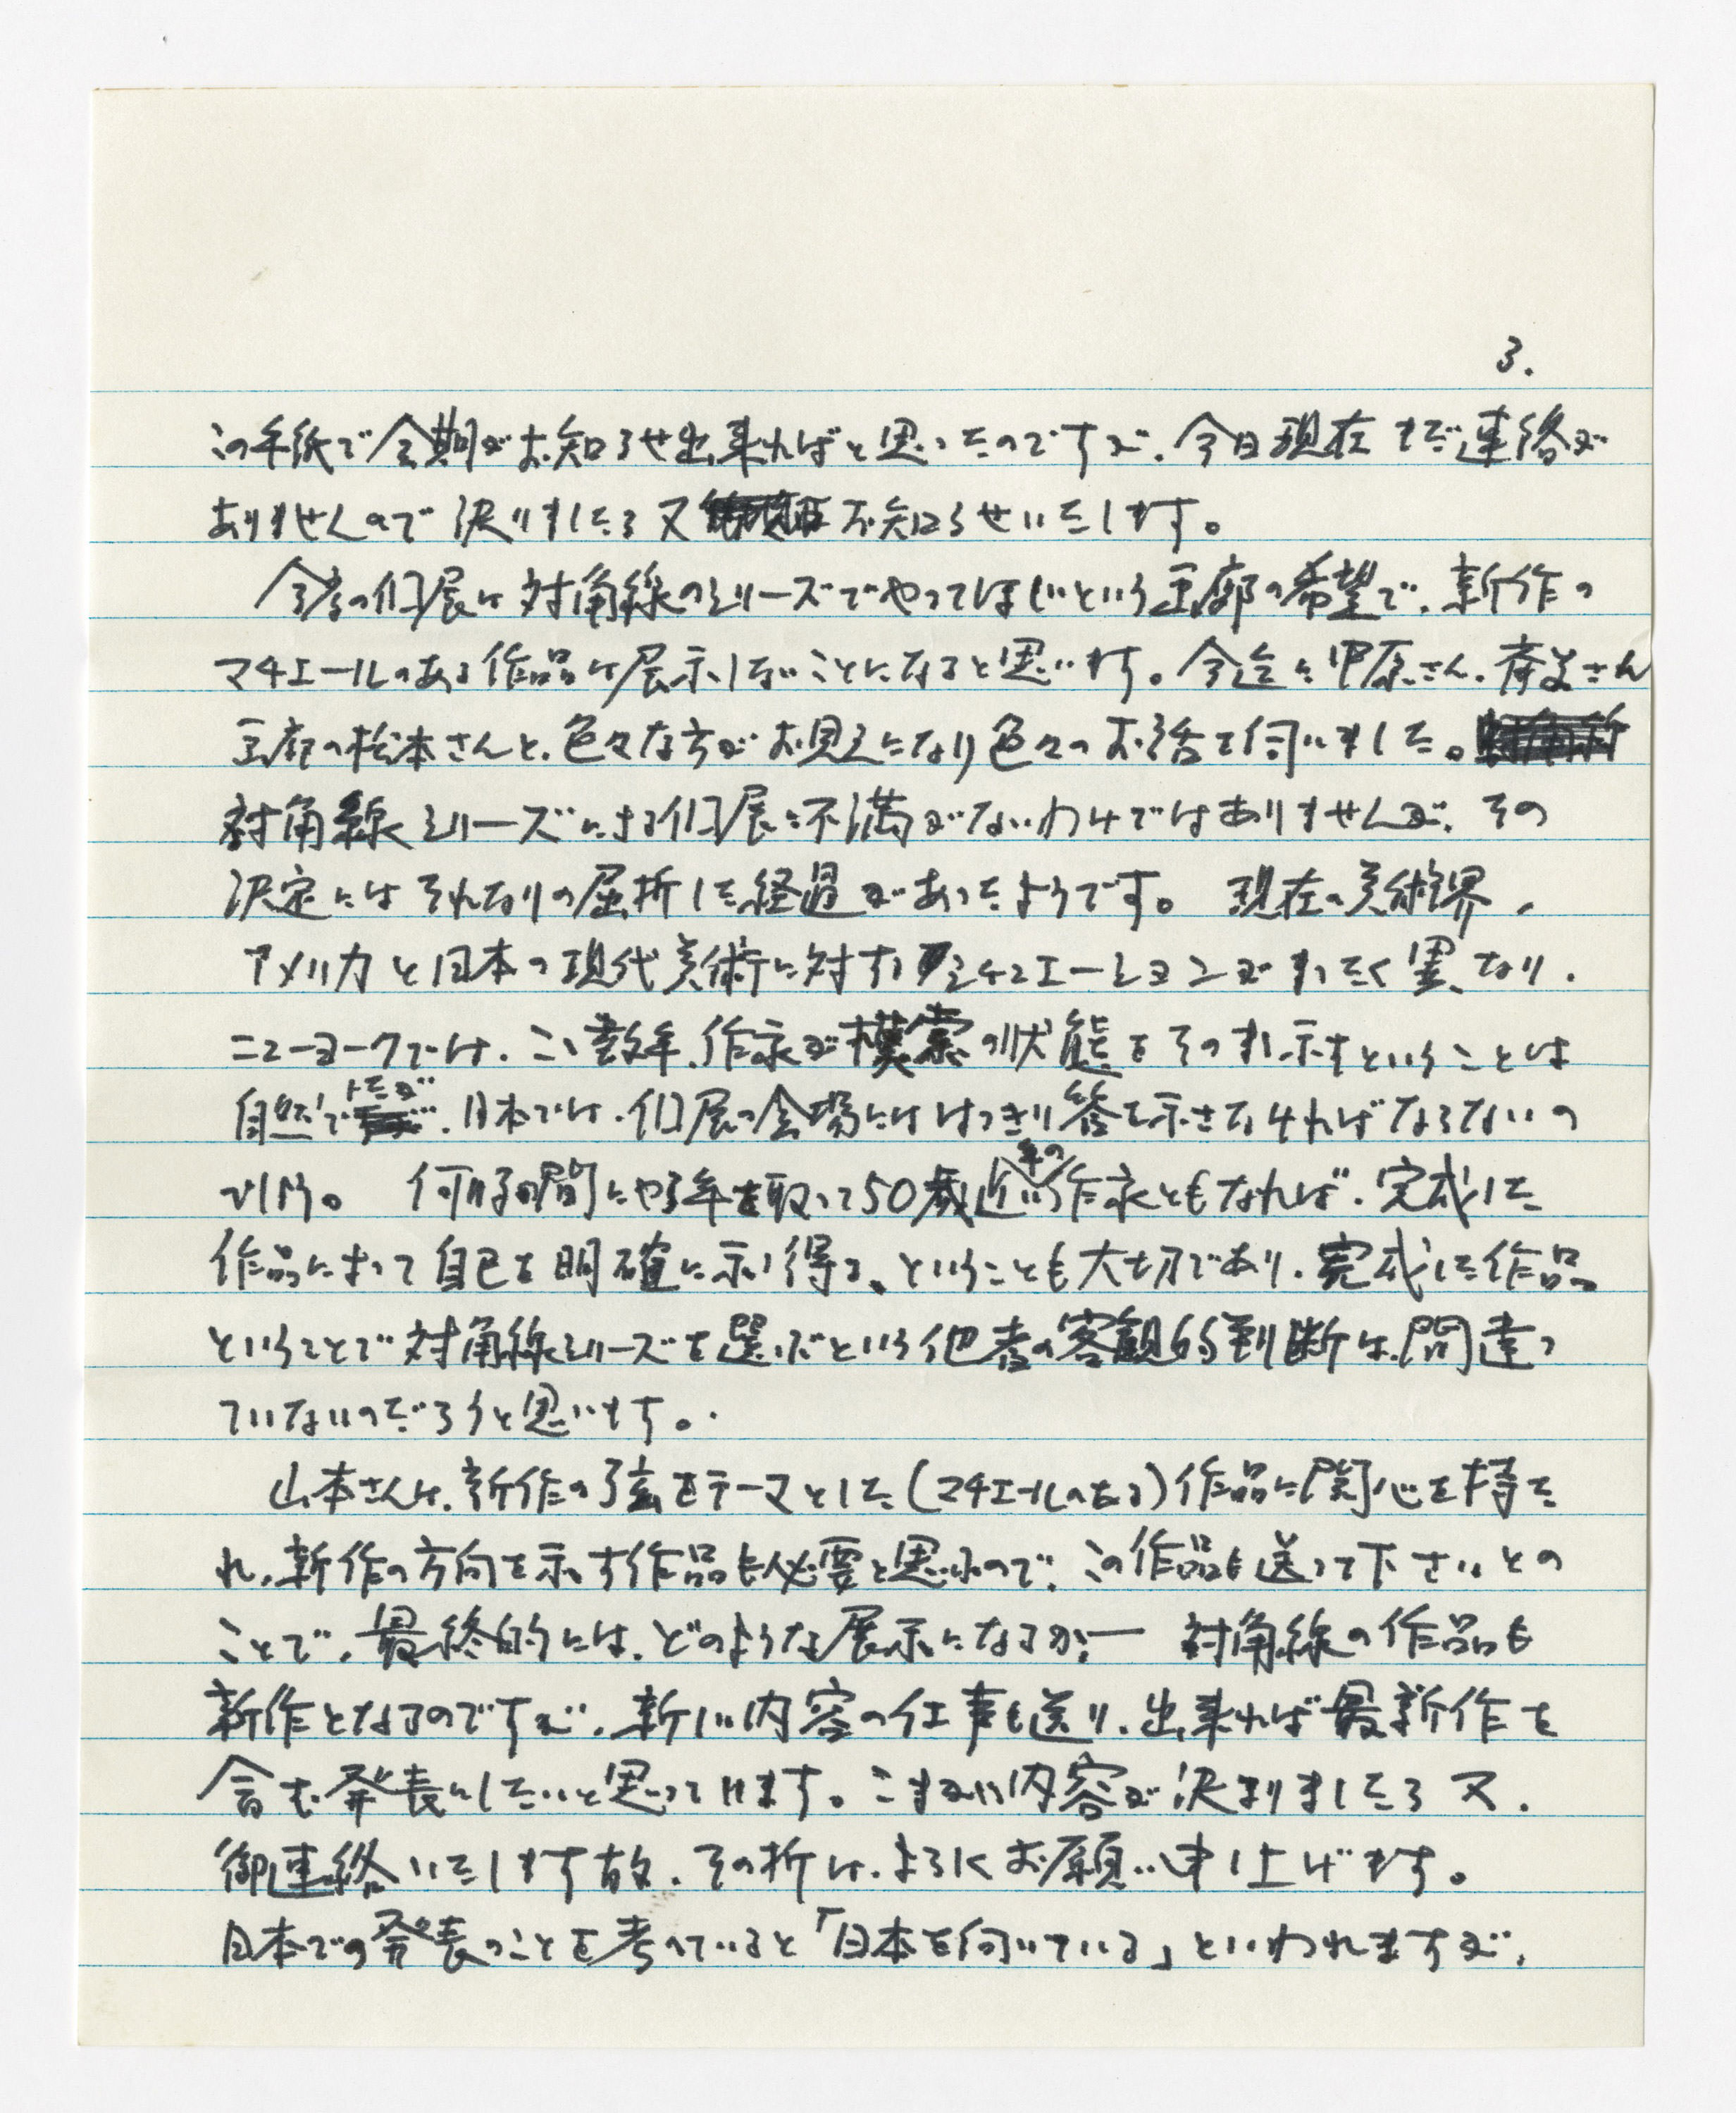 3.
この手紙で会期がお知らせ出来ればと思ったのですが、今日現在まだ連絡が
ありませんので決りましたら又お知らせいたします。
今春の個展は対角線のシリーズでやってほしいという画廊の希望で、新作の
マチエールのある作品は展示しないことになると思います。今迄に中原さん、斉藤さん
画廊の松本さんと、色々な方がお見えになり色々のお話を伺いました。
対角線シリーズによる個展に不満がないわけではありませんが、その
決定にはそれなりの屈折した経過があったようです。 現在の美術界、
アメリカと日本の現代美術に対するシチュエーションがまったく異なり、
ニューヨークでは、ここ数年、作家が模索の状態をそのまま示すということは
自然でしたが、日本では、個展の会場にははっきり答を示さなければならないの
でしょう。 何時の間にやら年を取って50歳近い年の作家ともなれば、完成した
作品によって自己を明確に示し得る、ということも大切であり、完成した作品
ということで対角線シリーズを選んだという他者の客観的判断は、間違っ
ていないのだろうと思います。
山本さんは、新作の弦をテーマとした(マチエールのある)作品に関心を持た
れ、新作の方向を示す作品も必要と思われるので、この作品も送って下さいとの
ことで、最終的には、どのような展示になるか、― 対角線の作品も
新作となるのですが、新しい内容の仕事も送り、出来れば最新作を
含む発表にしたいと思っています。こまかい内容が決まりましたら又、
御連絡いたします故、その折は、よろしくお願い申し上げます。
日本での発表のことを考えていると「日本を向いている」といわれますが、